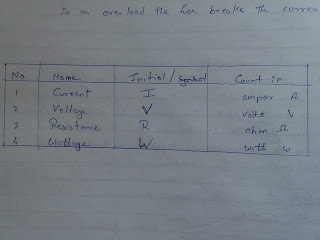 is an over load the fuse breake the curren
No Name Initial / Symbol Count in
1 Current I amper A
2 Voltage V volts V
3 Resistance R ohm Ω
4 Wattage W watt w